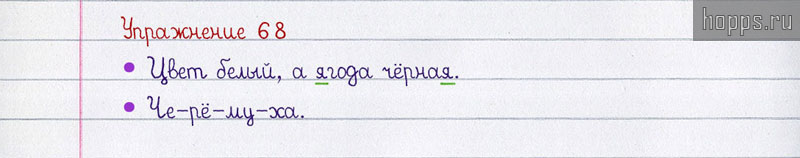 hopps.ru
Упражнение 68
• Цвет белый, а ягода чёрная.
• Че-рё-му-ха.